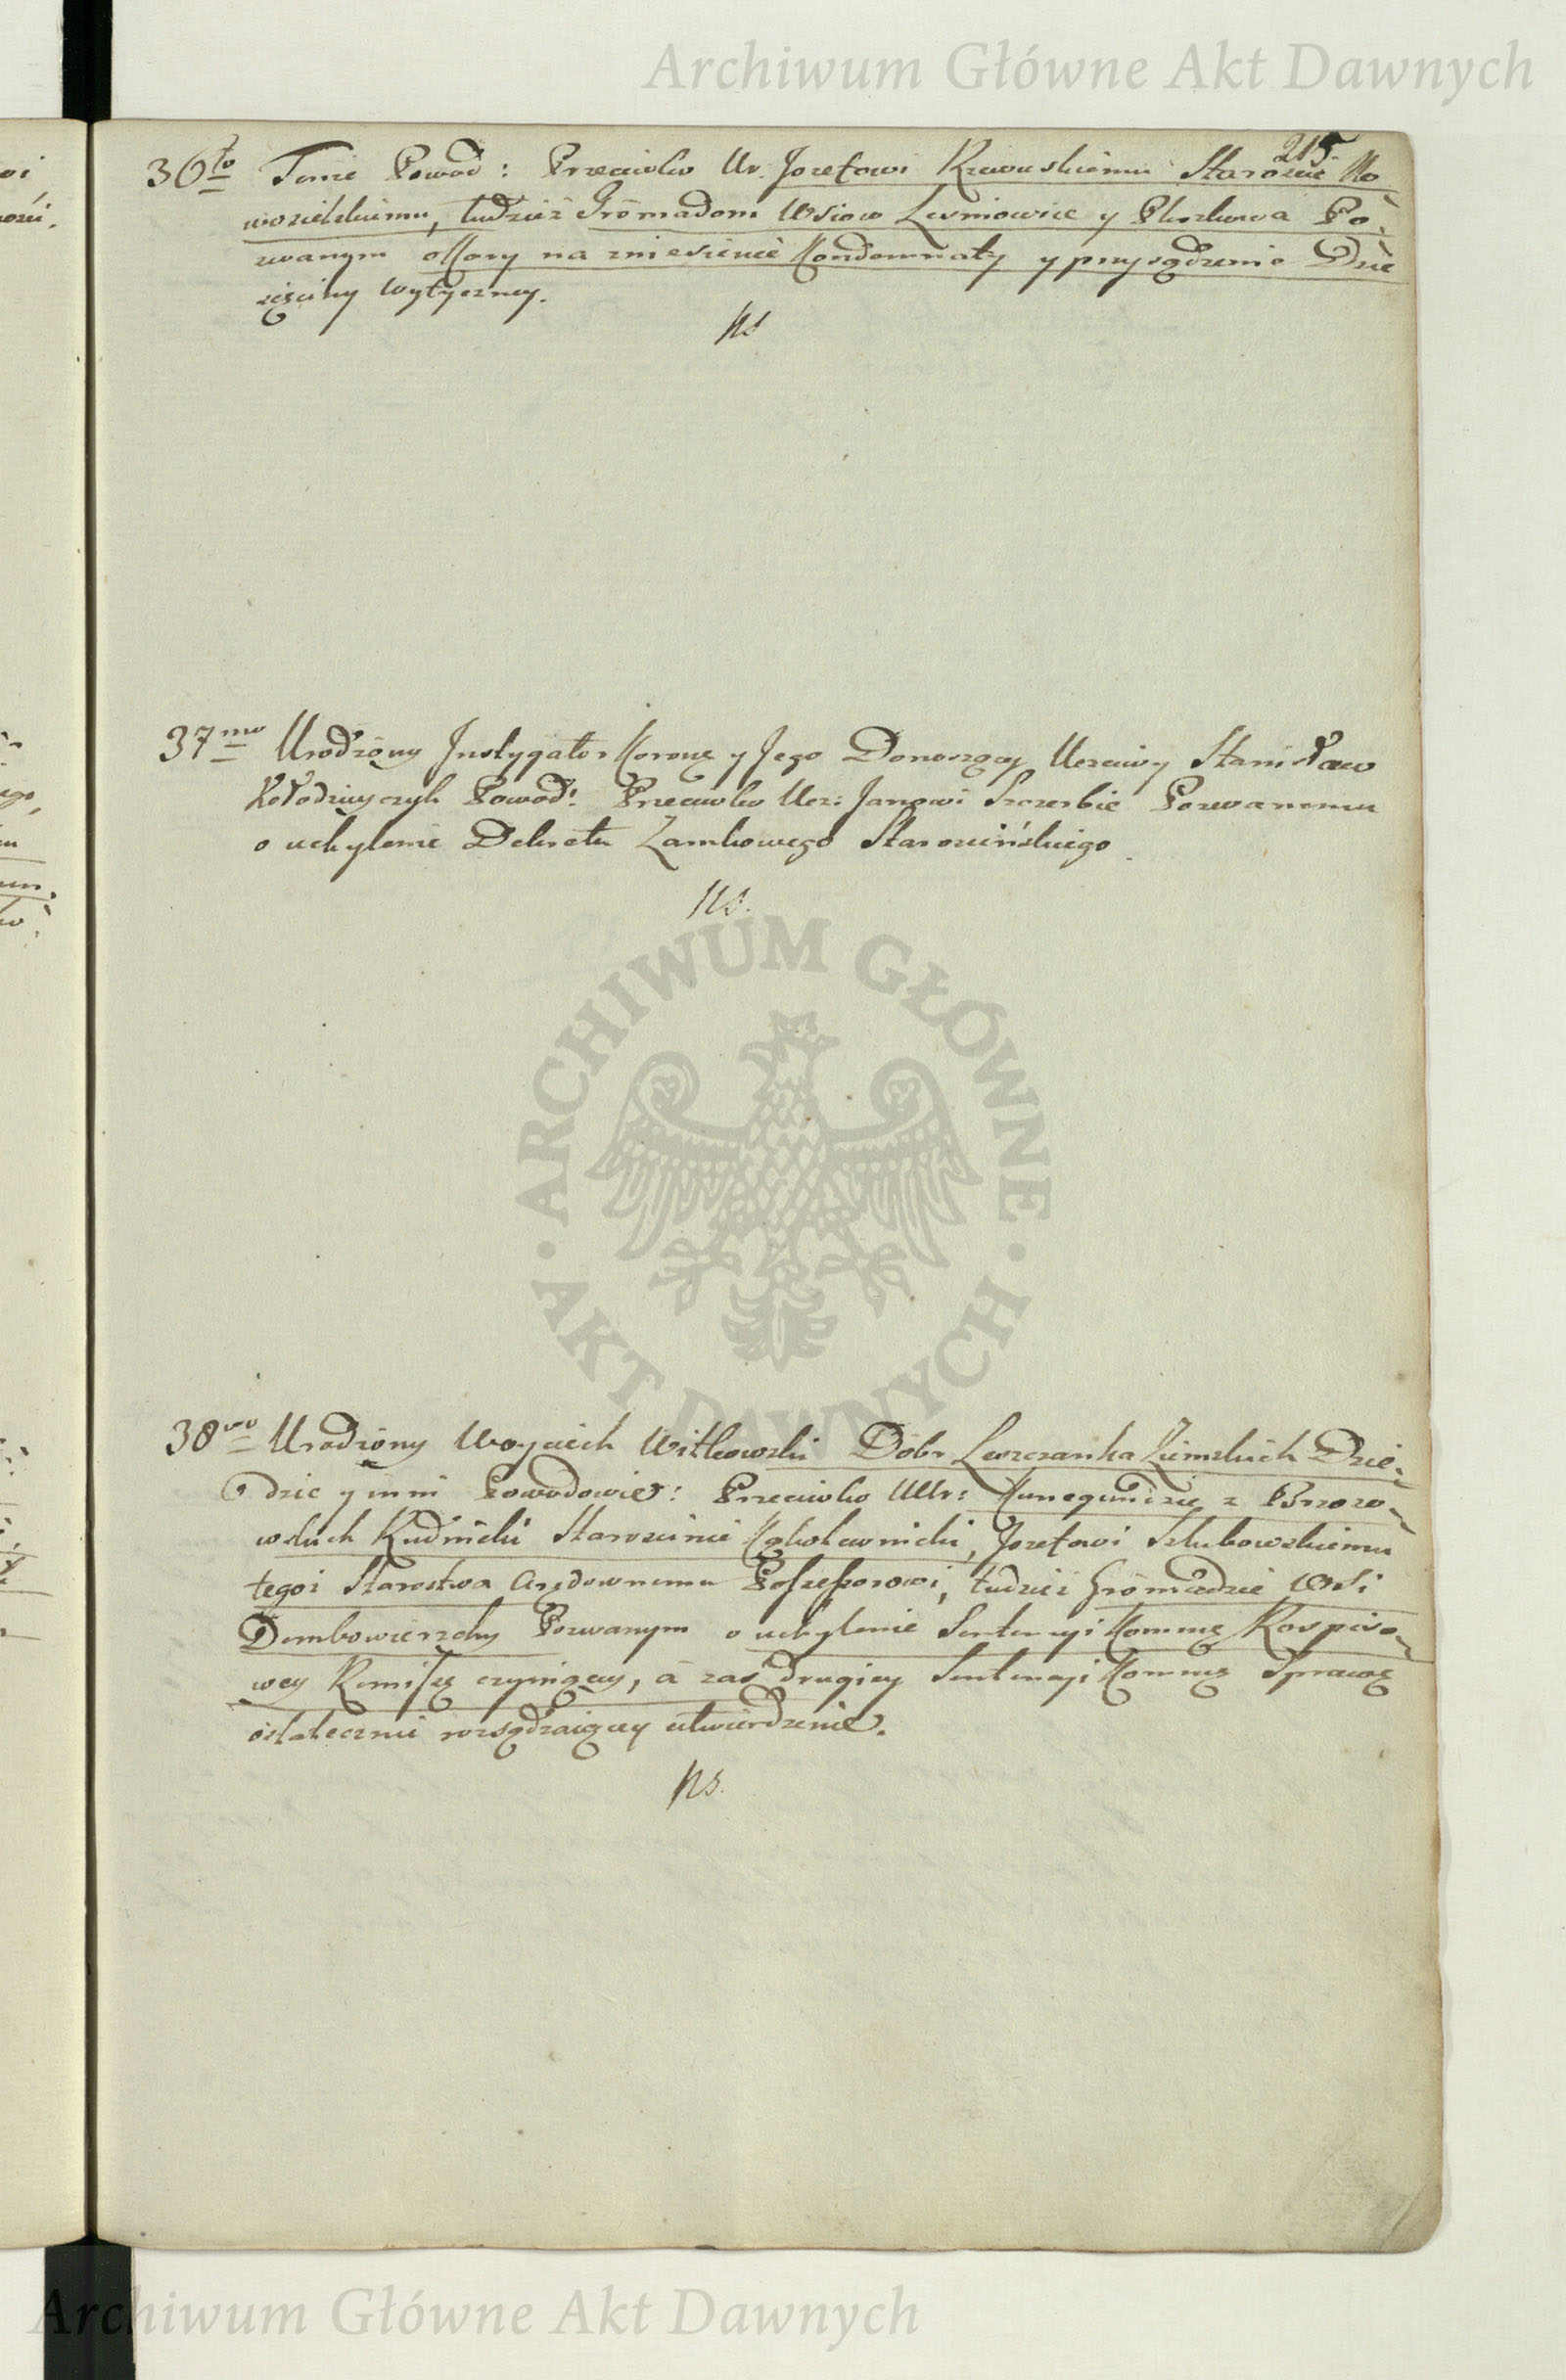 Archiwum Główne Akt Dawnych
215.
36to Tenże Powod: Przeciwko Ur. Jozefowi Rzewuskiemu Staroscie No
wosielskiemu, tudzież Gromadom Wsiow Lesniowice y Pło Po
zwanym na zniesienie Kondemnaty y przysądzenie Dzie
sięciny wytyczney.
ns
37mo Urodzony Instygator Koronę y Jego Donoszący Uczciwy Stanisław
Kołodzieyczyk Powod: Przeciwko Ucz: Janowi Szczerbie Pozwanemu
o uchylenie Dekretu Zamkowego Staroscińskiego
ns.
ARCHIWUM GŁÓWNE • AKT DAWNYCH •
38vo Urodzony Woyciech Witkowski Dobr Leszczanka Ziemskich Dzie
dzic y inni Powodowie: Przeciwko UUr: Kunegundzie z Brzozo
wskich Kudnicki Staroscinie Kąkolewnicki, Jozefowi Szlubowskiemu
tegoż Starostwa Arędownemu Possessorowi, tudzież Gromadzie Wsi
Dembowierzchy Pozwanym o uchylenie Sentencyi Kommę Rospiso
wey Remissę czyniącey, a zas drugiey Sentencyi Kommę Sprawę
ostatecznie rozsądzaiącey utwierdzenie.
ns.
Archiwum Główne Akt Dawnych